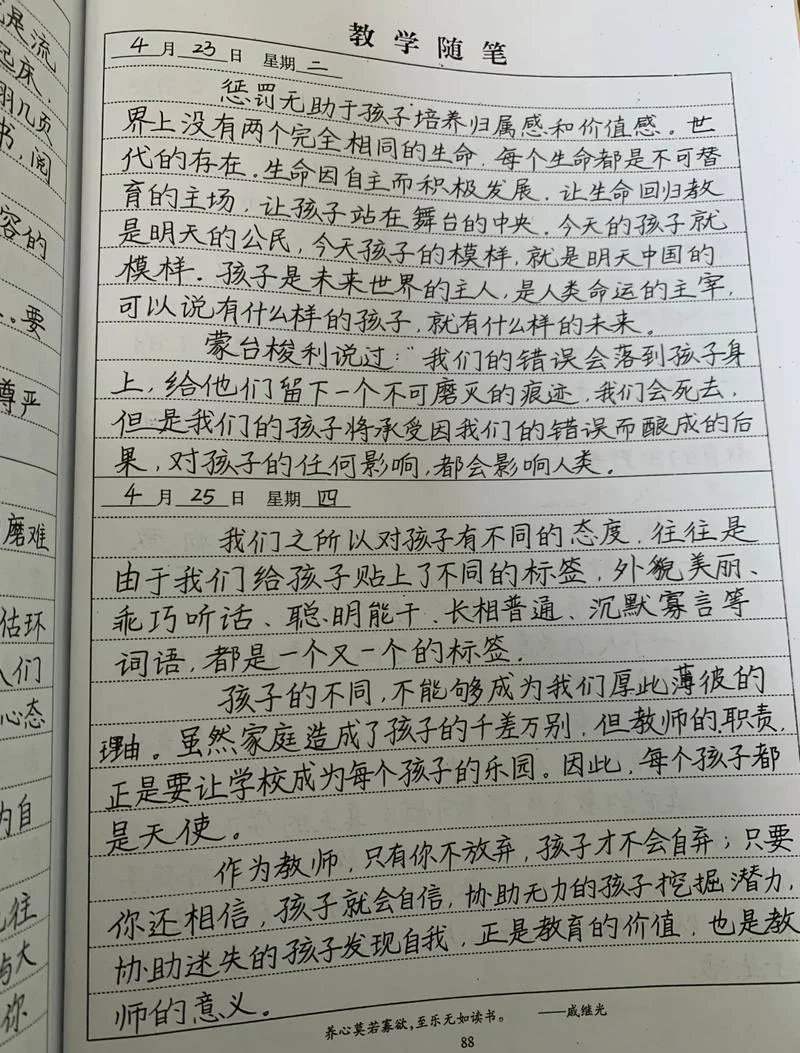 教学随笔
4月23日 星期二
惩罚无助于孩子培养归属感和价值感。世
界上没有两个完全相同的生命,每个生命都是不可替
代的存在。生命因自主而积极发展,让生命回归教
育的主场,让孩子站在舞台的中央。今天的孩子就
是明天的公民,今天孩子的模样,就是明天中国的
模样。孩子是未来世界的主人,是人类命运的主宰,
可以说有什么样的孩子,就有什么样的未来。
蒙台梭利说过:“我们的错误会落到孩子身
上,给他们留下一个不可磨灭的痕迹,我们会死去,
但是我们的孩子将承受因我们的错误而酿成的后
果,对孩子的任何影响,都会影响人类。
4月25日 星期四
我们之所以对孩子有不同的态度,往往是
由于我们给孩子贴上了不同的标签,外貌美丽、
乖巧听话、聪明能干、长相普通、沉默寡言等
词语,都是一个又一个的标签。
孩子的不同,不能够成为我们厚此薄彼的
理由。虽然家庭造成了孩子的千差万别,但教师的职责,
正是要让学校成为每个孩子的乐园。因此,每个孩子都
是天使。
作为教师,只有你不放弃,孩子才不会自弃;只要
你还相信,孩子就会自信,协助无力的孩子挖掘潜力,
协助迷失的孩子发现自我,正是教育的价值,也是教
师的意义。
养心莫若寡欲,至乐无如读书。 ——戚继光
88
是流
起床,
翻几页
书,阅
容的
。要
尊严
磨难
估环
人们
心态
为自
往
与大
你